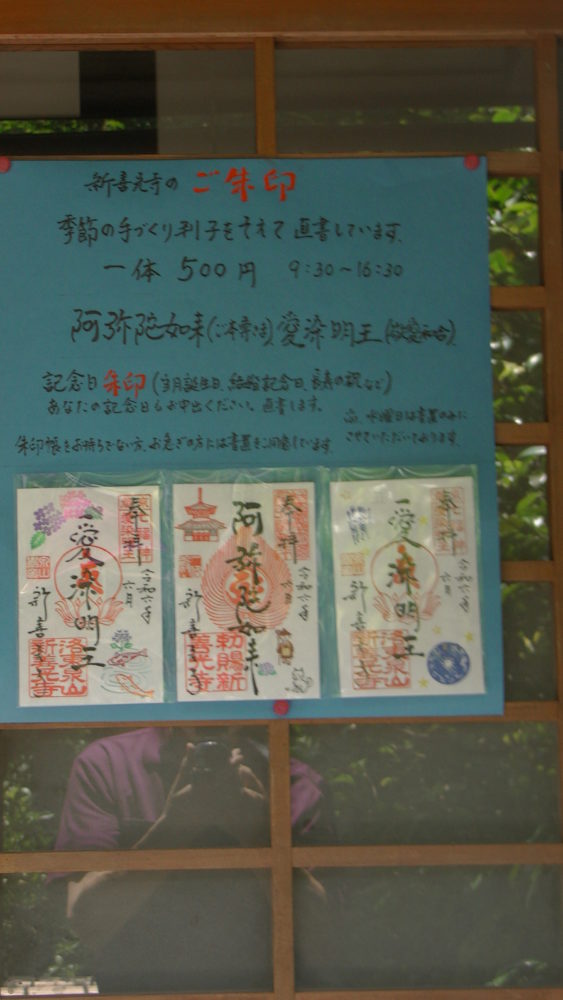 新善光寺の ご朱印
季節の手づくり判子をそえて直書しています。
一体 500円 9:30～16:30
阿弥陀如来(ご本尊さま)愛染明王(敬愛和合)
記念日朱印(当月誕生日、結婚記念日、長寿の祝など)
あなたの記念日もお申出ください。直書します。
水曜日は書置のみに
させていただいております。
朱印帳をお持ちでない方、お急ぎの方には書置をご用意しています。
奉拝
愛染明王
令和六年
六月
新善光寺
洛東泉山
新善光寺
奉拝
阿弥陀如来
令和六年
六月
新善光寺
勅賜新
善光寺
奉拝
愛染明王
令和六年
六月
新善光寺
洛東泉山
新善光寺